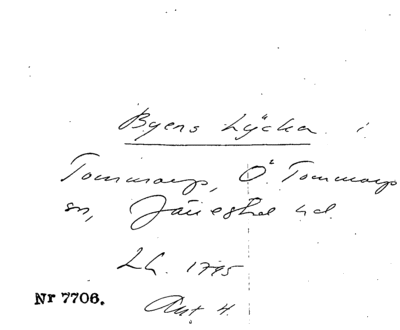 Byens Lycka i
Tommarp, Ö. Tommarp
sn, Järrestad hd.
LH. 1795
Nr 7706.
Akt 4.